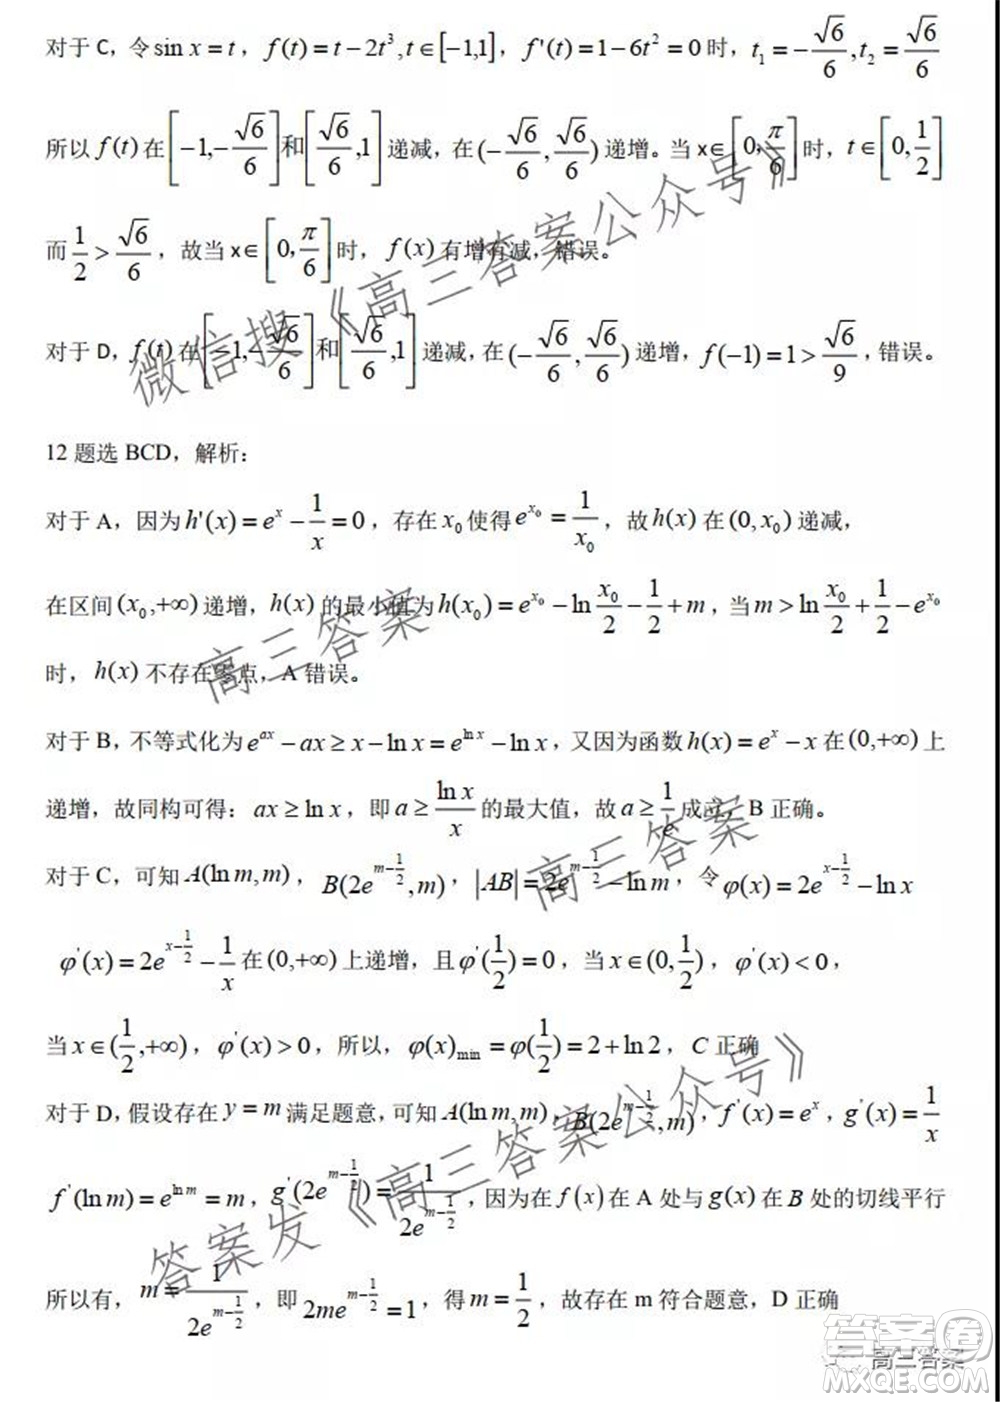 对于 C，令 sin x = t，f(t) = t − 2t³, t ∈ [−1,1]，f'(t) = 1 − 6t² = 0 时，t₁ = −√6/6, t₂ = √6/6
所以 f(t) 在 [−1, −√6/6] 和 [√6/6, 1] 递减，在 (−√6/6, √6/6) 递增。当 x∈[0, π/6] 时，t∈[0, 1/2]
而 1/2 > √6/6，故当 x∈[0, π/6] 时，f(x) 有增有减，错误。
对于 D，f(t) 在 [−1, −√6/6] 和 [√6/6, 1] 递减，在 (−√6/6, √6/6) 递增，f(−1) = 1 > √6/9，错误。
12 题选 BCD，解析：
对于 A，因为 h'(x) = e^x − 1/x = 0，存在 x₀ 使得 e^{x₀} = 1/x₀，故 h(x) 在 (0, x₀) 递减，
在区间 (x₀, +∞) 递增，h(x) 的最小值为 h(x₀) = e^{x₀} − ln x₀/2 − 1/2 + m，当 m > ln x₀/2 + 1/2 − e^{x₀}
时，h(x) 不存在零点，A 错误。
对于 B，不等式化为 e^{ax} − ax ≥ x − ln x = e^{ln x} − ln x，又因为函数 h(x) = e^x − x 在 (0, +∞) 上
递增，故同构可得：ax ≥ ln x，即 a ≥ ln x/x 的最大值，故 a ≥ 1/e 成立，B 正确。
对于 C，可知 A(ln m, m)，B(2e^{m−1/2}, m)，|AB| = 2e^{m−1/2} − ln m，令 φ(x) = 2e^{x−1/2} − ln x
φ'(x) = 2e^{x−1/2} − 1/x 在 (0, +∞) 上递增，且 φ'(1/2) = 0，当 x∈(0, 1/2)，φ'(x) < 0，
当 x∈(1/2, +∞)，φ'(x) > 0，所以，φ(x)min = φ(1/2) = 2 + ln 2，C 正确
对于 D，假设存在 y = m 满足题意，可知 A(ln m, m)，B(2e^{m−1/2}, m)，f'(x) = e^x，g'(x) = 1/x
f'(ln m) = e^{ln m} = m，g'(2e^{m−1/2}) = 1/(2e^{m−1/2})，因为在 f(x) 在 A 处与 g(x) 在 B 处的切线平行
所以有，m = 1/(2e^{m−1/2})，即 2me^{m−1/2} = 1，得 m = 1/2，故存在 m 符合题意，D 正确
微信搜《高三答案公众号》
高三答案
高三答案
答案发《高三答案公众号》
高三答案
答案圈
MXQE.COM